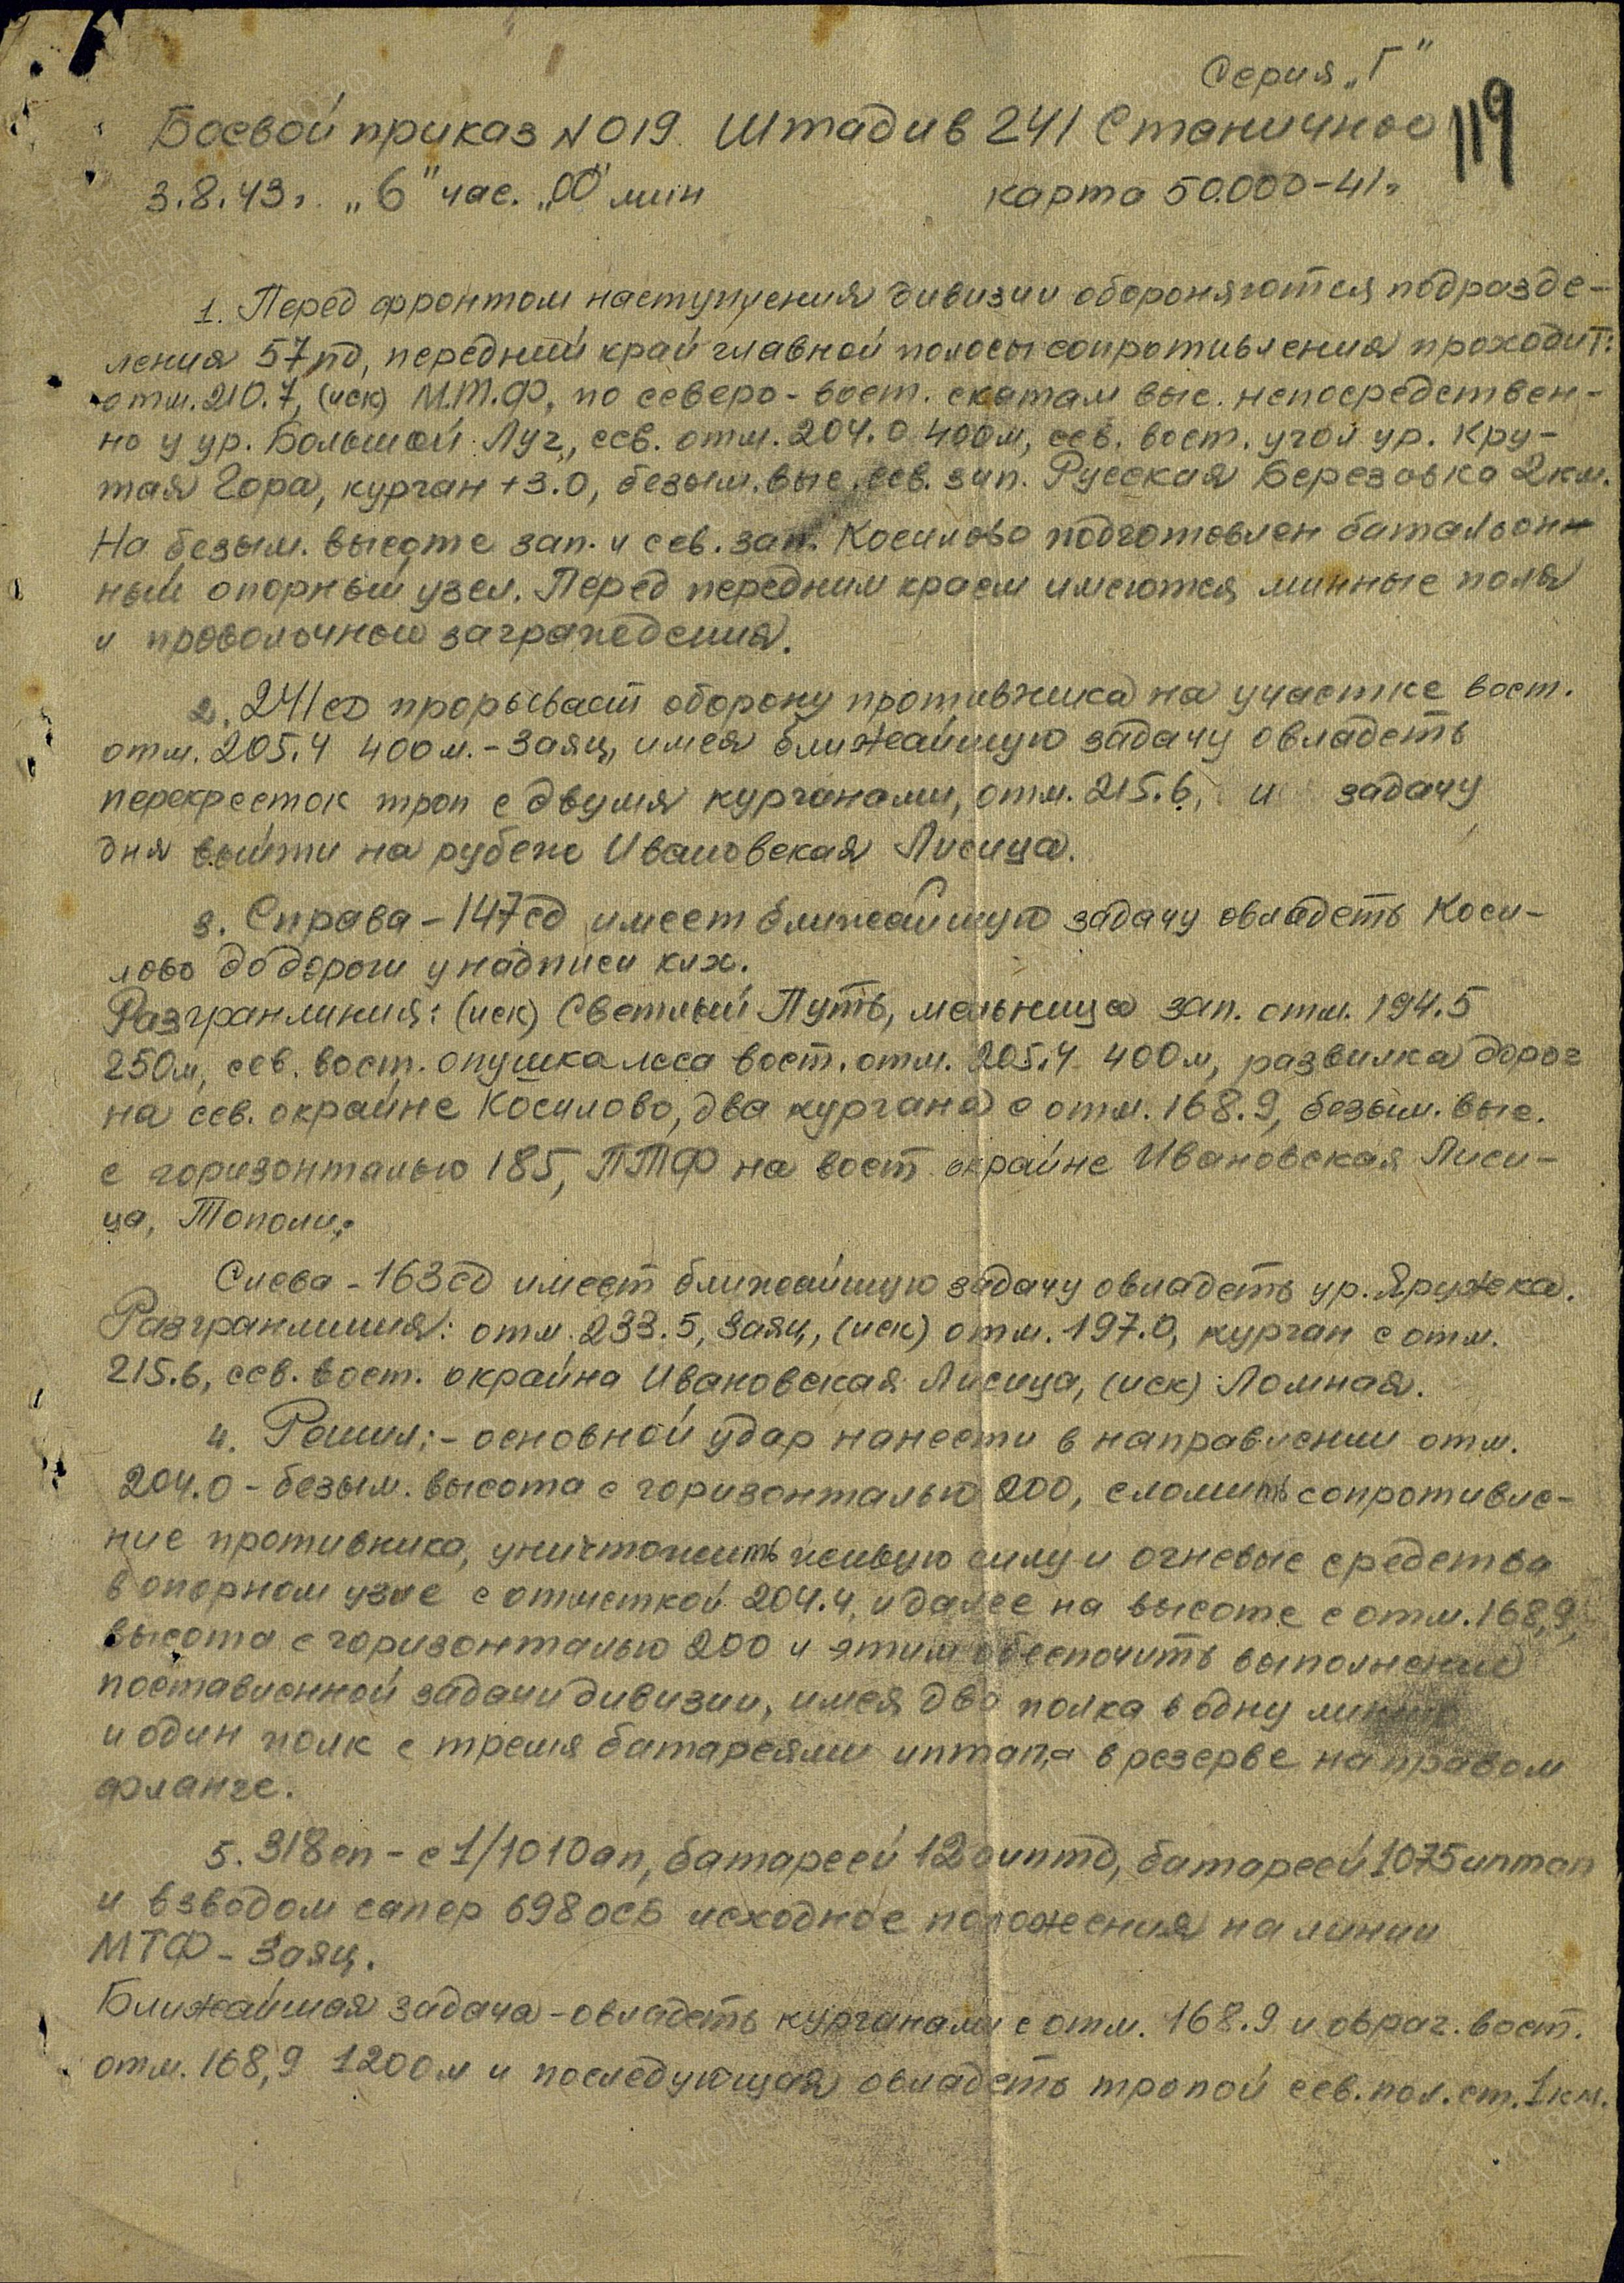 Серия „Г"
Боевой приказ №019. Штадив 241 Станичное
119
3.8.43г. „6" час. „00" мин
карта 50.000-41г.
1. Перед фронтом наступления дивизии обороняются подразде-
ления 57пд, передний край главной полосы сопротивления проходит:
отм. 210.7, (иск) М.Т.Ф, по северо-вост. скатам выс. непосредствен-
но у ур. Большой Луг, сев. отм. 204.0 400м, сев. вост. угол ур. Кру-
тая Гора, курган +3.0, безым. выс. сев. зап. Русская Березовка 2км.
На безым. высоте зап. и сев. зап. Косилово подготовлен батальон-
ный опорный узел. Перед передним краем имеются минные поля
и проволочной заграждения.
2. 241сд прорывает оборону противника на участке вост.
отм. 205.4 400м. - Заяц, имея ближайшую задачу овладеть
перекресток троп с двумя курганами, отм. 215.6, и задачу
дня выйти на рубеж Ивановская Лисица.
3. Справа - 147сд имеет ближайшую задачу овладеть Коси-
лово до дороги у надписи клх.
Разгранлиния: (иск) Светлый Путь, мельница зап. отм. 194.5
250м, сев. вост. опушка леса вост. отм. 205.4 400м, развилка дорог
на сев. окраине Косилово, два кургана с отм. 168.9, безым. выс.
с горизонталью 185, ПТФ на вост окраине Ивановская Лиси-
ца, Тополи,
Слева - 163сд имеет ближайшую задачу овладеть ур. Яружка.
Разгранлиния: отм. 233.5, Заяц, (иск) отм. 197.0, курган с отм.
215.6, сев. вост. окраина Ивановская Лисица, (иск) Ломная.
4. Решил: - основной удар нанести в направлении отм.
204.0 - безым. высота с горизонталью 200, сломить сопротивле-
ние противника, уничтожить живую силу и огневые средства
в опорном узле с отметкой 204.4, и далее на высоте с отм. 168,9,
высота с горизонталью 200 и этим обеспечить выполнение
поставленной задачи дивизии, имея два полка в одну линию
и один полк с тремя батареями иптап-а в резерве на правом
фланге.
5. 318сп - с 1/1010ап, батареей 12 оиптд, батареей 1075иптап
и взводом сапер 698 осб исходное положения на линии
МТФ - Заяц.
Ближайшая задача - овладеть курганами с отм. 168.9 и овраг. вост.
отм. 168,9 1200м и последующая овладеть тропой сев. пол. ст. 1км.